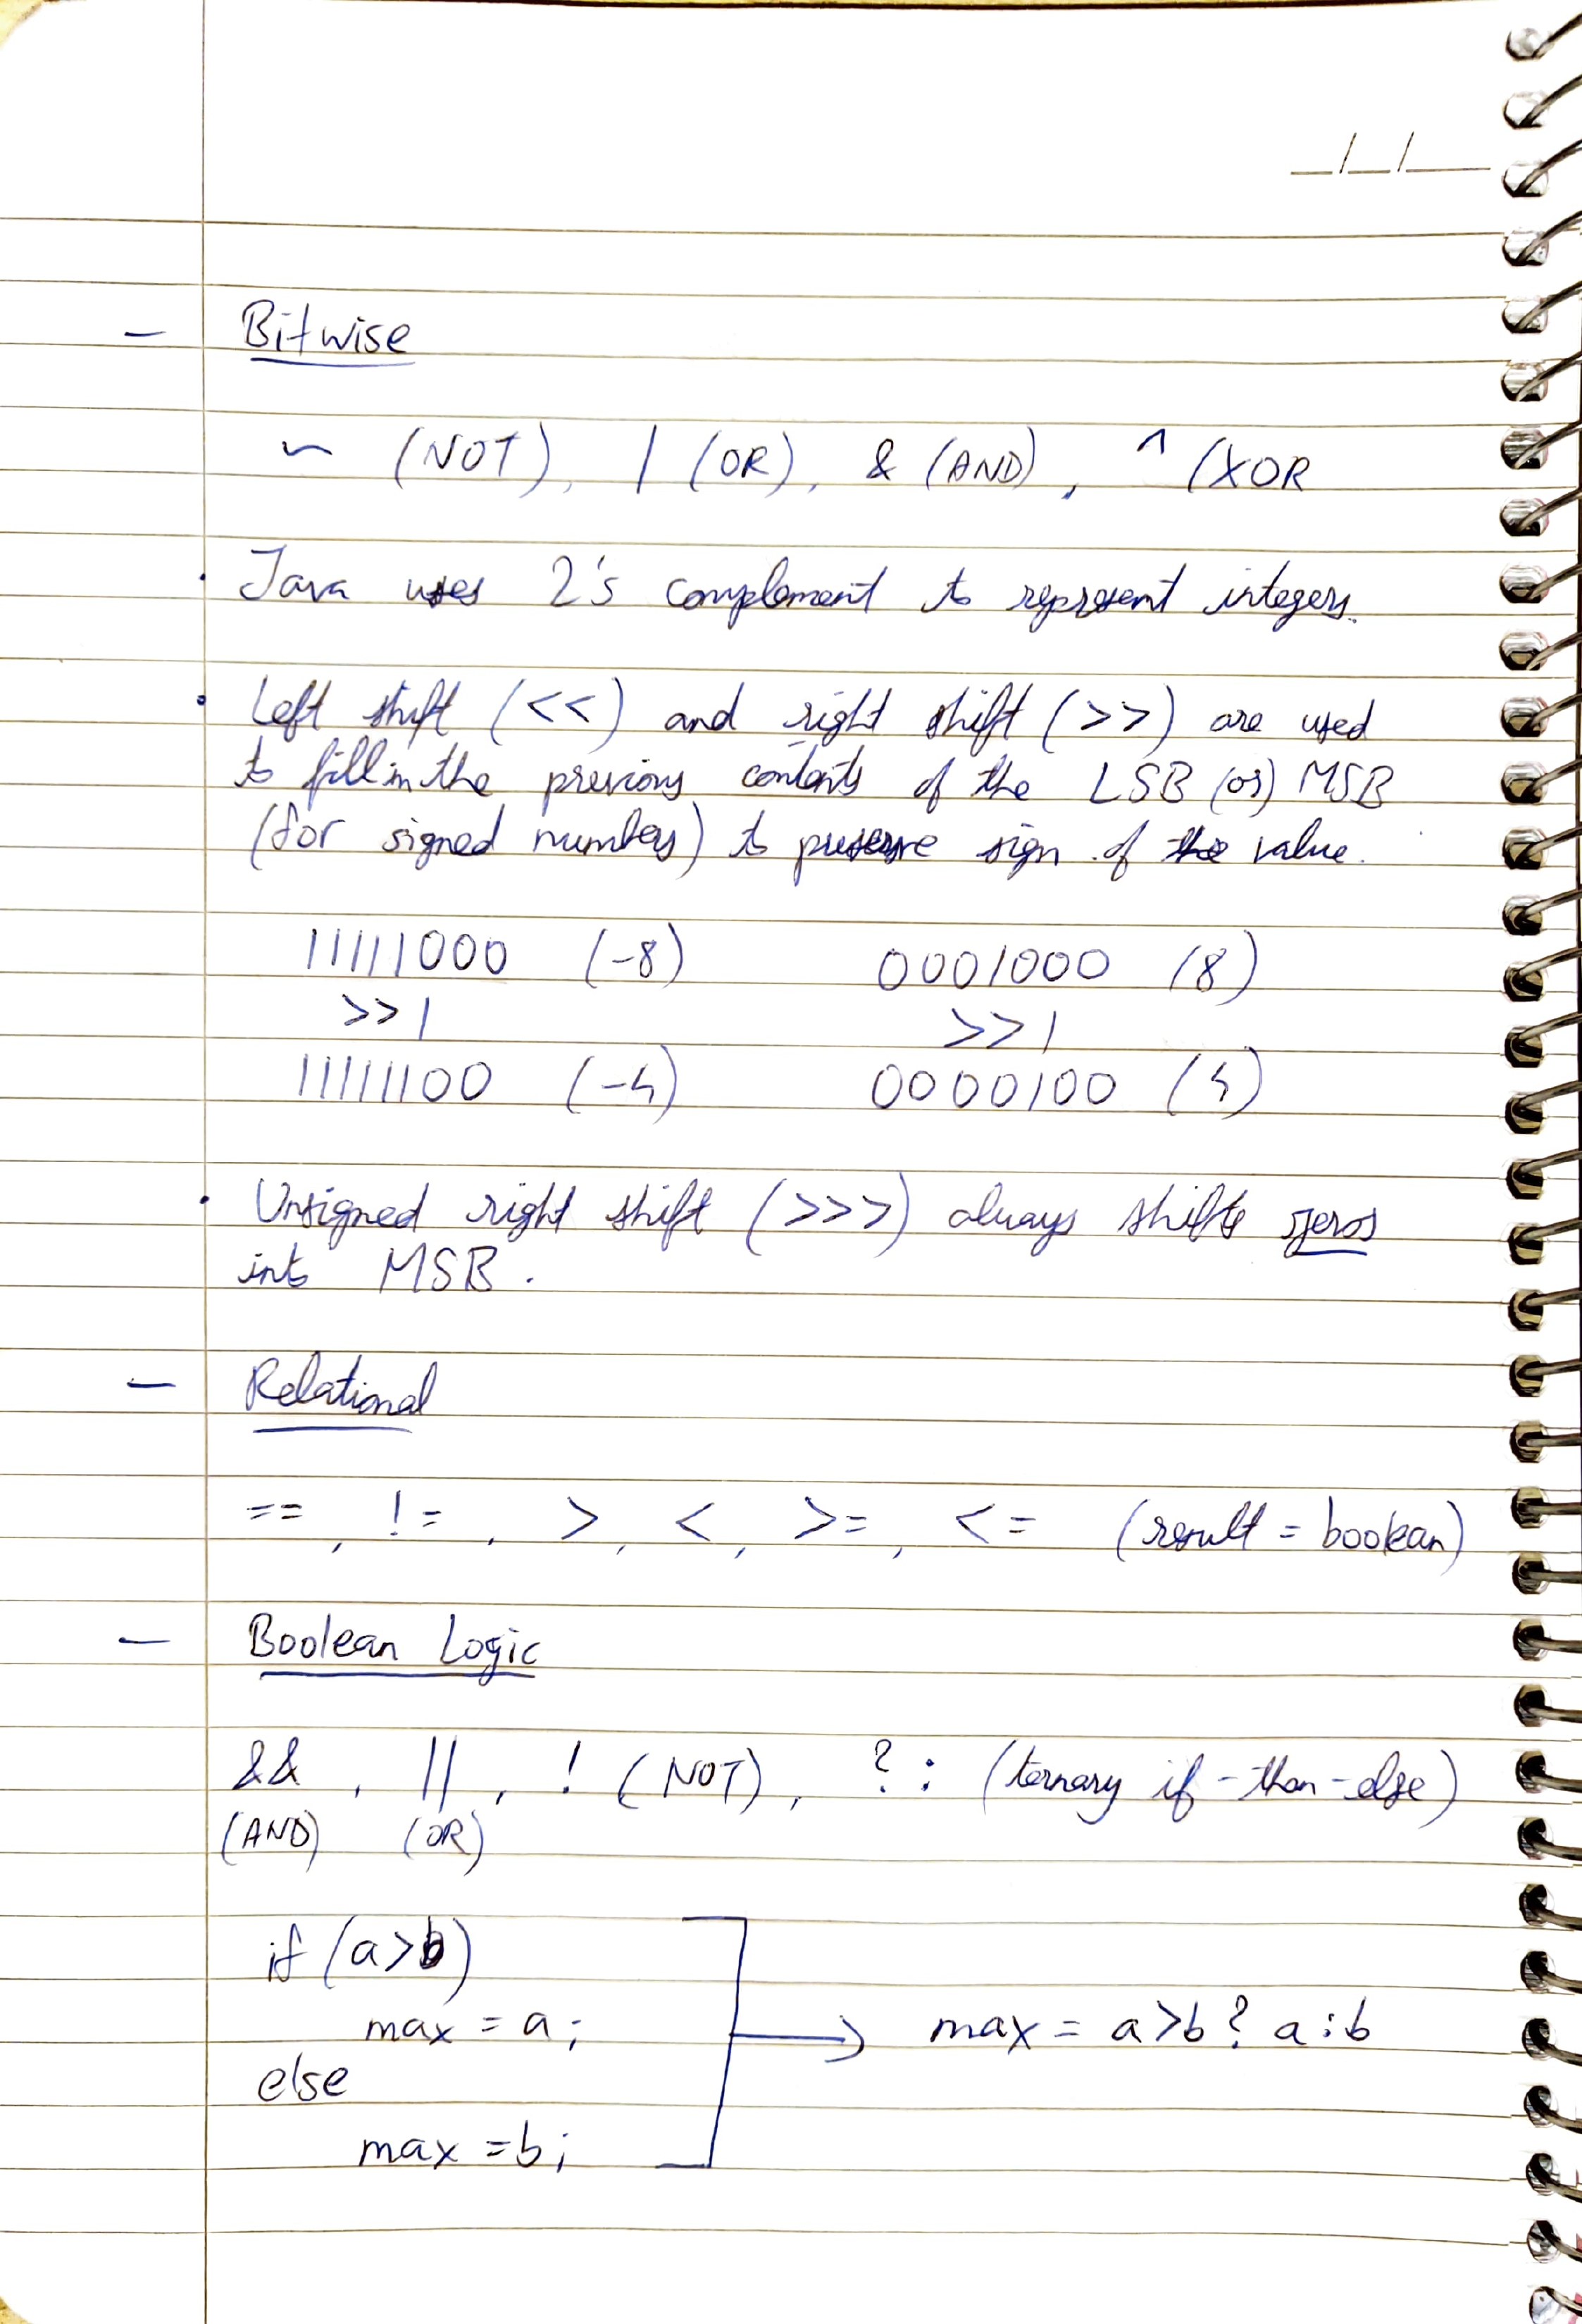 _/_/_
- Bitwise
~ (NOT), | (OR), & (AND), ^ (XOR
• Java uses 2's complement to represent integers.
• Left shift (<<) and right shift (>>) are used
to fill in the previous contents of the LSB (or) MSB
(for signed numbers) to preserve sign of the value.
11111000 (-8) 0001000 (8)
>>1 >>1
11111100 (-4) 0000100 (4)
• Unsigned right shift (>>>) always shifts zeros
into MSB.
- Relational
==, !=, >, <, >=, <= (result = boolean)
- Boolean Logic
&&, ||, ! (NOT), ?: (ternary if-then-else)
(AND) (OR)
if (a>b)
max = a;
→ max = a>b? a:b
else
max =b;